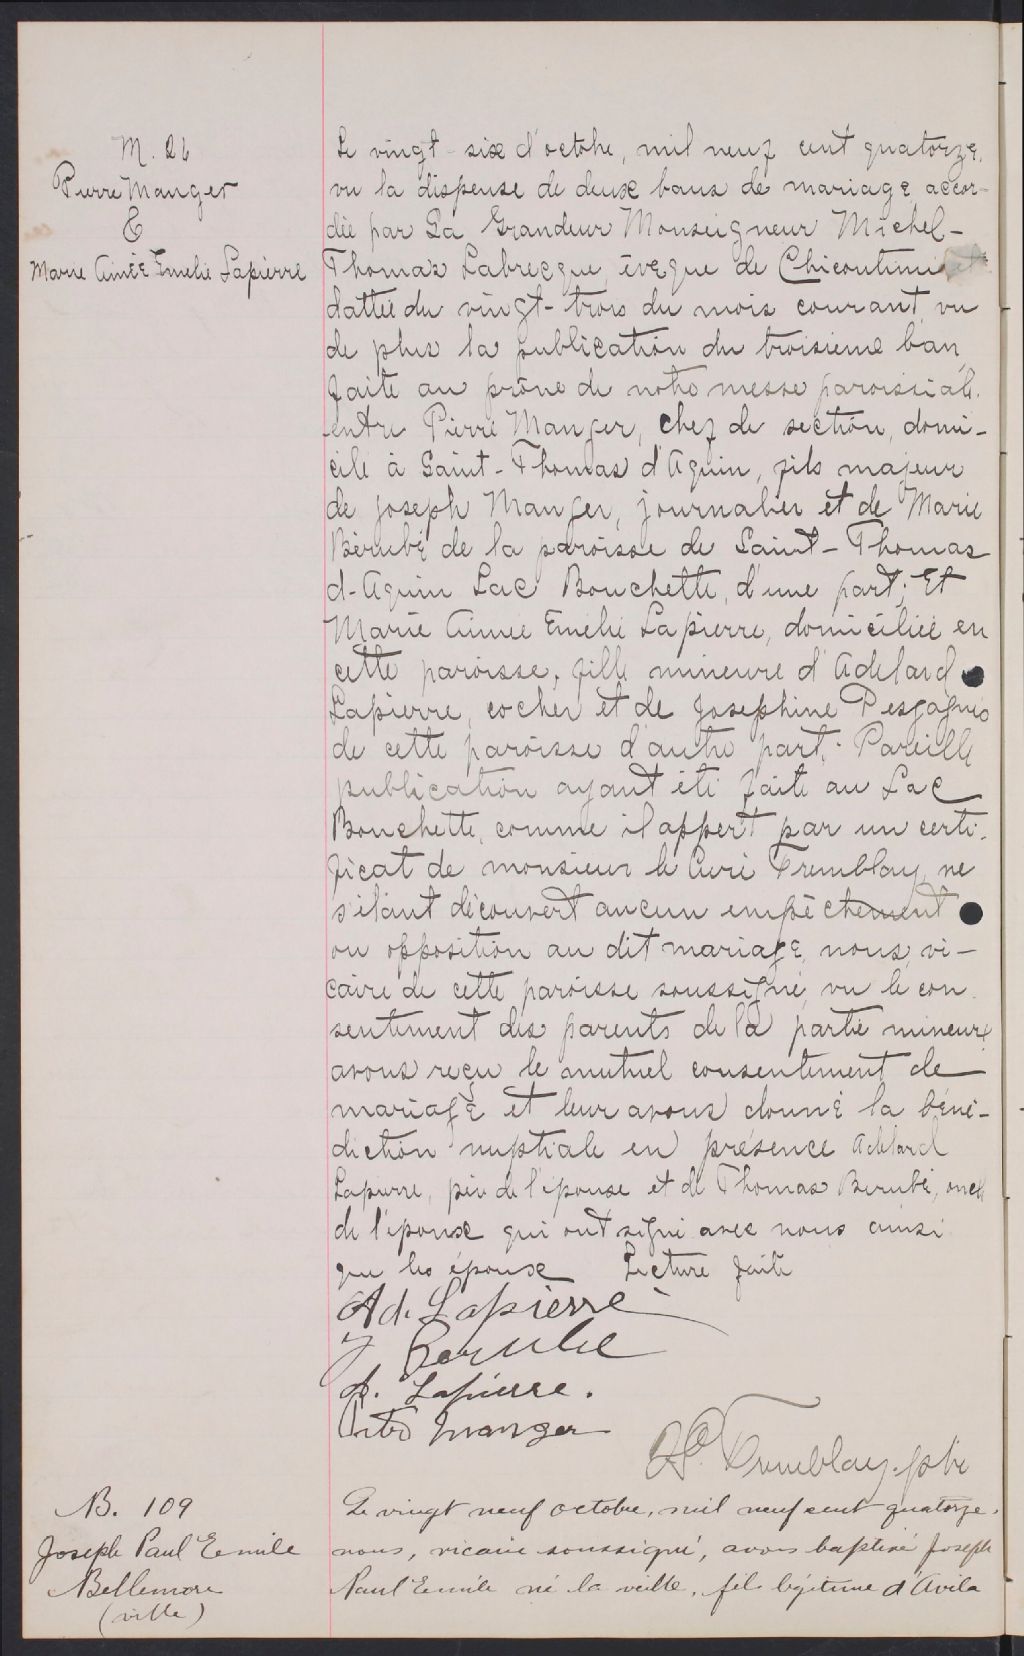 M. 26
Pierre Manger
&
Marie Aimée Emelie Lapierre
Le vingt-six d'octobre, mil neuf cent quatorze,
vu la dispense de deux bans de mariage accor-
dée par Sa Grandeur Monseigneur Michel-
Thomas Labrecque, évêque de Chicoutimi
dattée du vingt-trois du mois courant, vu
de plus la publication du troisième ban,
faite au prône de notre messe paroissiale.
entre Pierre Manger, chef de section, domi-
cilé à Saint-Thomas d'Aquin, fils majeur
de Joseph Manger, journalier et de Marie
Bérubé de la paroisse de Saint-Thomas
d-Aquin Lac Bouchette, d'une part; Et
Marie Aimée Emélie Lapierre, domiciliée en
cette paroisse, fille mineure d'Adelard
Lapierre, cocher et de Josephine Desgagnés
de cette paroisse d'autre part. Pareille
publication ayant été faite au Lac
Bouchette, comme il appert par un certi-
ficat de monsieur le Curé Tremblay, ne
s'étant découvert aucun empêchement
ou opposition au dit mariage, nous, vi-
caire de cette paroisse soussigné, vu le con-
sentement des parents de la partie mineure
avons reçu le mutuel consentement de
mariage et leur avons donné la béné-
diction nuptiale en présence Adelard
Lapierre, père de l'épouse et de Thomas Berubé, oncle
de l'époux qui ont signé avec nous ainsi
que les époux Lecture faite
Ad. Lapierre
T Berube
A. Lapierre.
Manger
Tremblay, ptre
B. 109
Joseph Paul Emile
Bellemare
(ville)
Le vingt neuf octobre, mil neuf cent quatorze,
nous, vicaire soussigné, avons baptisé Joseph
Paul Emile né la veille, fils légitime d'Avila